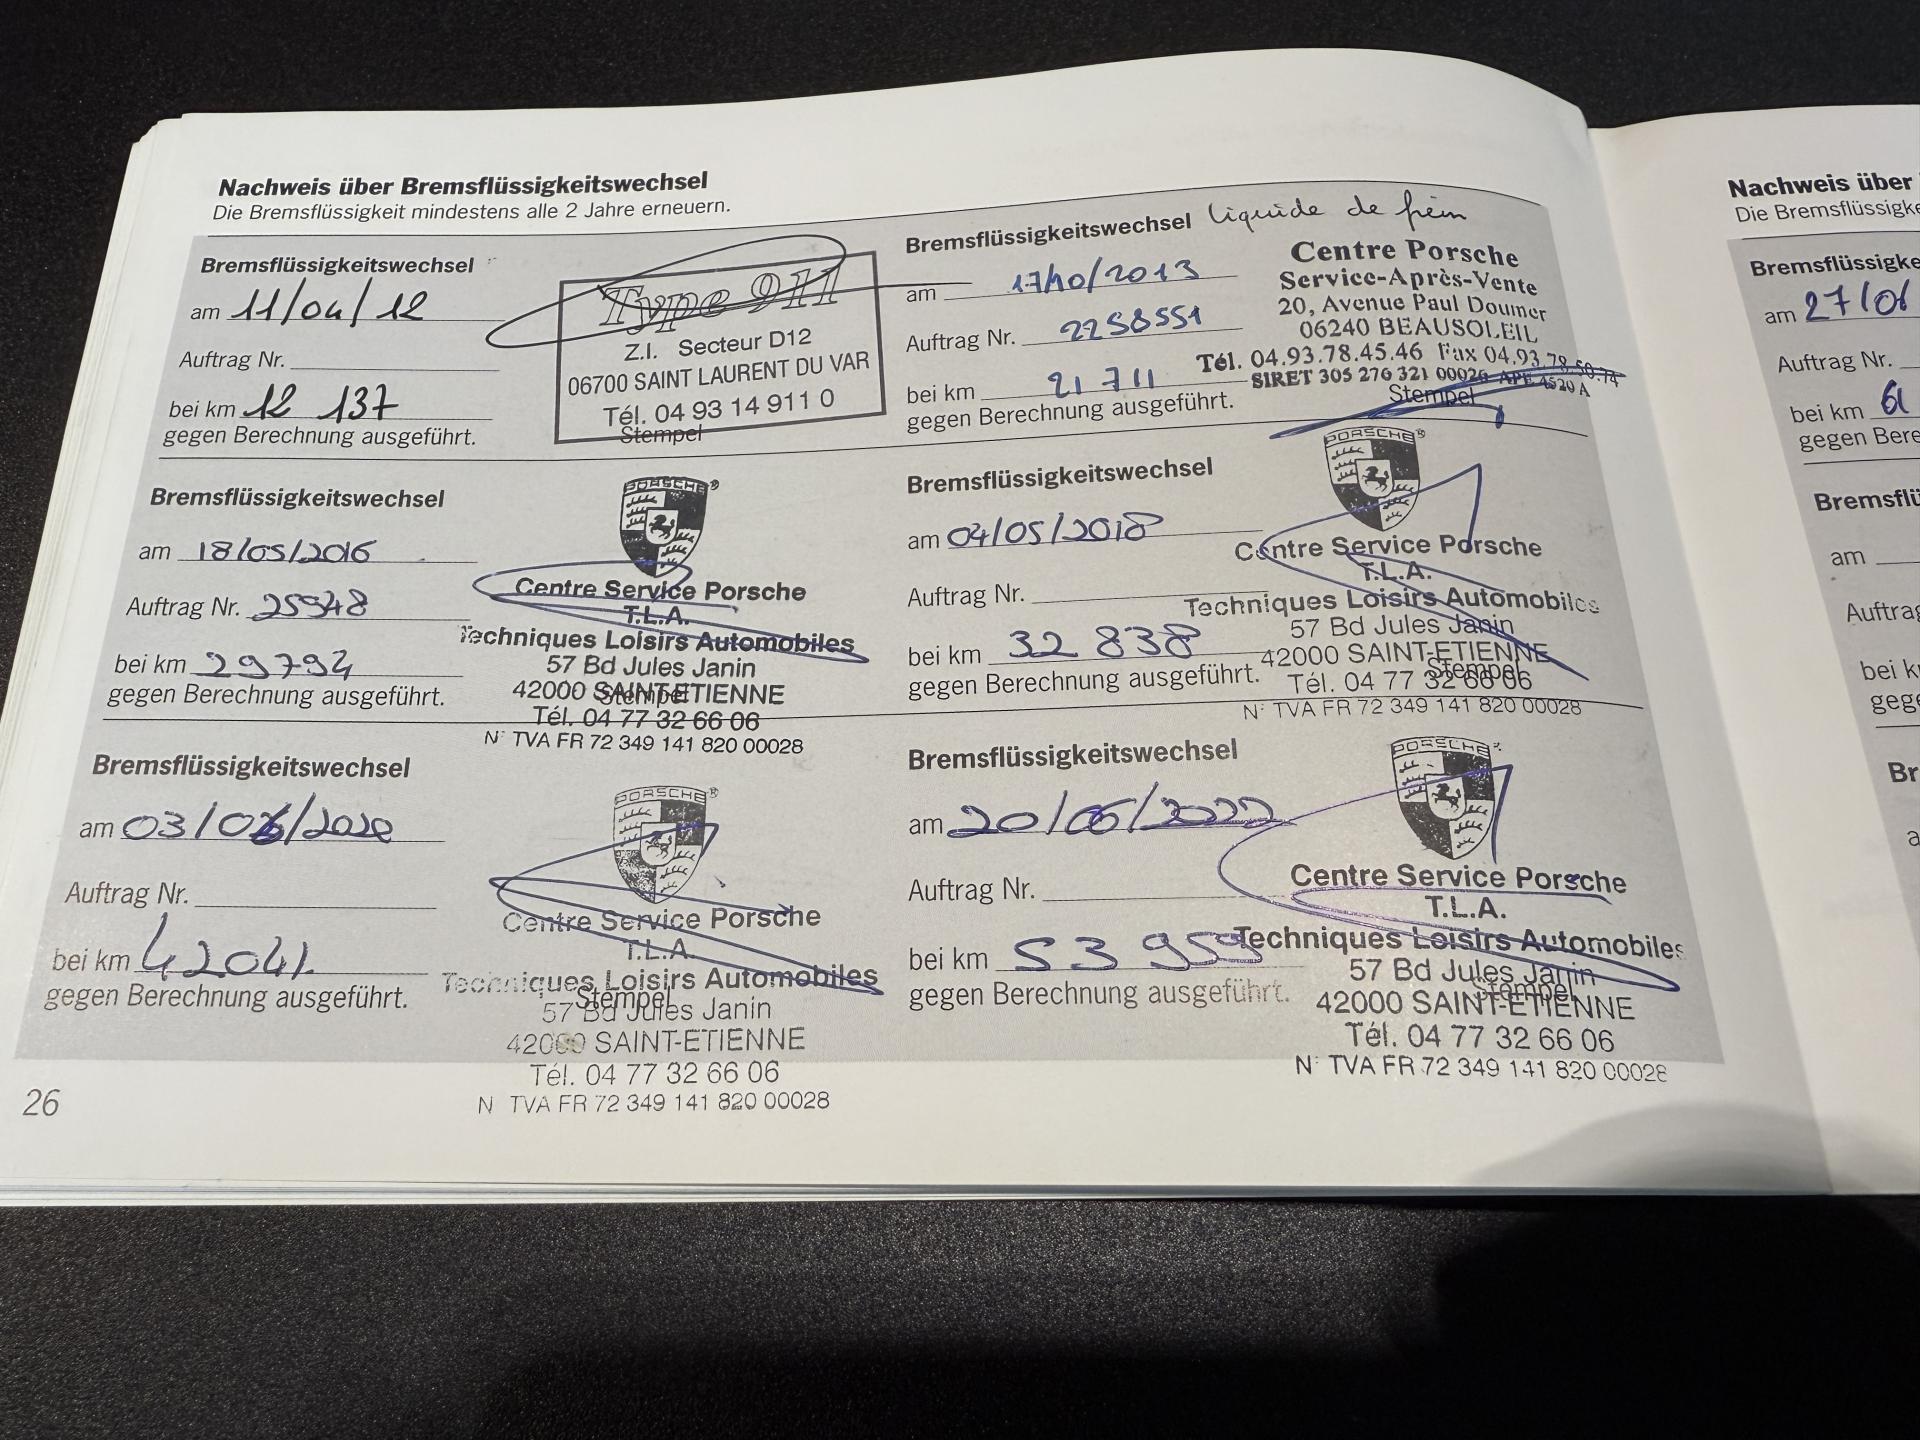 Nachweis über Bremsflüssigkeitswechsel
Die Bremsflüssigkeit mindestens alle 2 Jahre erneuern.
Bremsflüssigkeitswechsel
am 11/04/12
Auftrag Nr.
bei km 12 137
gegen Berechnung ausgeführt.
Type 911
Z.I. Secteur D12
06700 SAINT LAURENT DU VAR
Tél. 04 93 14 911 0
Stempel
Bremsflüssigkeitswechsel liquide de frein
am 17/10/2013
Auftrag Nr. 2258551
bei km 21 711
gegen Berechnung ausgeführt.
Centre Porsche
Service-Après-Vente
20, Avenue Paul Doumer
06240 BEAUSOLEIL
Tél. 04.93.78.45.46 Fax 04.93.78.50.74
SIRET 305 276 321 00026 APE 4520 A
Stempel
Bremsflüssigkeitswechsel
am 18/05/2016
Auftrag Nr. 25948
bei km 29794
gegen Berechnung ausgeführt.
PORSCHE®
Centre Service Porsche
T.L.A.
Techniques Loisirs Automobiles
57 Bd Jules Janin
42000 SAINT-ETIENNE
Stempel
Tél. 04 77 32 66 06
N° TVA FR 72 349 141 820 00028
Bremsflüssigkeitswechsel
am 04/05/2018
Auftrag Nr.
bei km 32 838
gegen Berechnung ausgeführt.
PORSCHE®
Centre Service Porsche
T.L.A.
Techniques Loisirs Automobiles
57 Bd Jules Janin
42000 SAINT-ETIENNE
Stempel
Tél. 04 77 32 66 06
N° TVA FR 72 349 141 820 00028
Bremsflüssigkeitswechsel
am 03/06/2020
Auftrag Nr.
bei km 42041
gegen Berechnung ausgeführt.
PORSCHE®
Centre Service Porsche
T.L.A.
Techniques Loisirs Automobiles
Stempel
57 Bd Jules Janin
42000 SAINT-ETIENNE
Tél. 04 77 32 66 06
N TVA FR 72 349 141 820 00028
Bremsflüssigkeitswechsel
am 20/06/2022
Auftrag Nr.
bei km 53 959
gegen Berechnung ausgeführt.
PORSCHE
Centre Service Porsche
T.L.A.
Techniques Loisirs Automobiles
57 Bd Jules Janin
Stempel
42000 SAINT-ETIENNE
Tél. 04 77 32 66 06
N° TVA FR 72 349 141 820 00028
26
Nachweis über
Die Bremsflüssigke
Bremsflüssigke
am 27/0
Auftrag Nr.
bei km 61
gegen Bere
Bremsflü
am
Auftrag
bei k
gege
Br